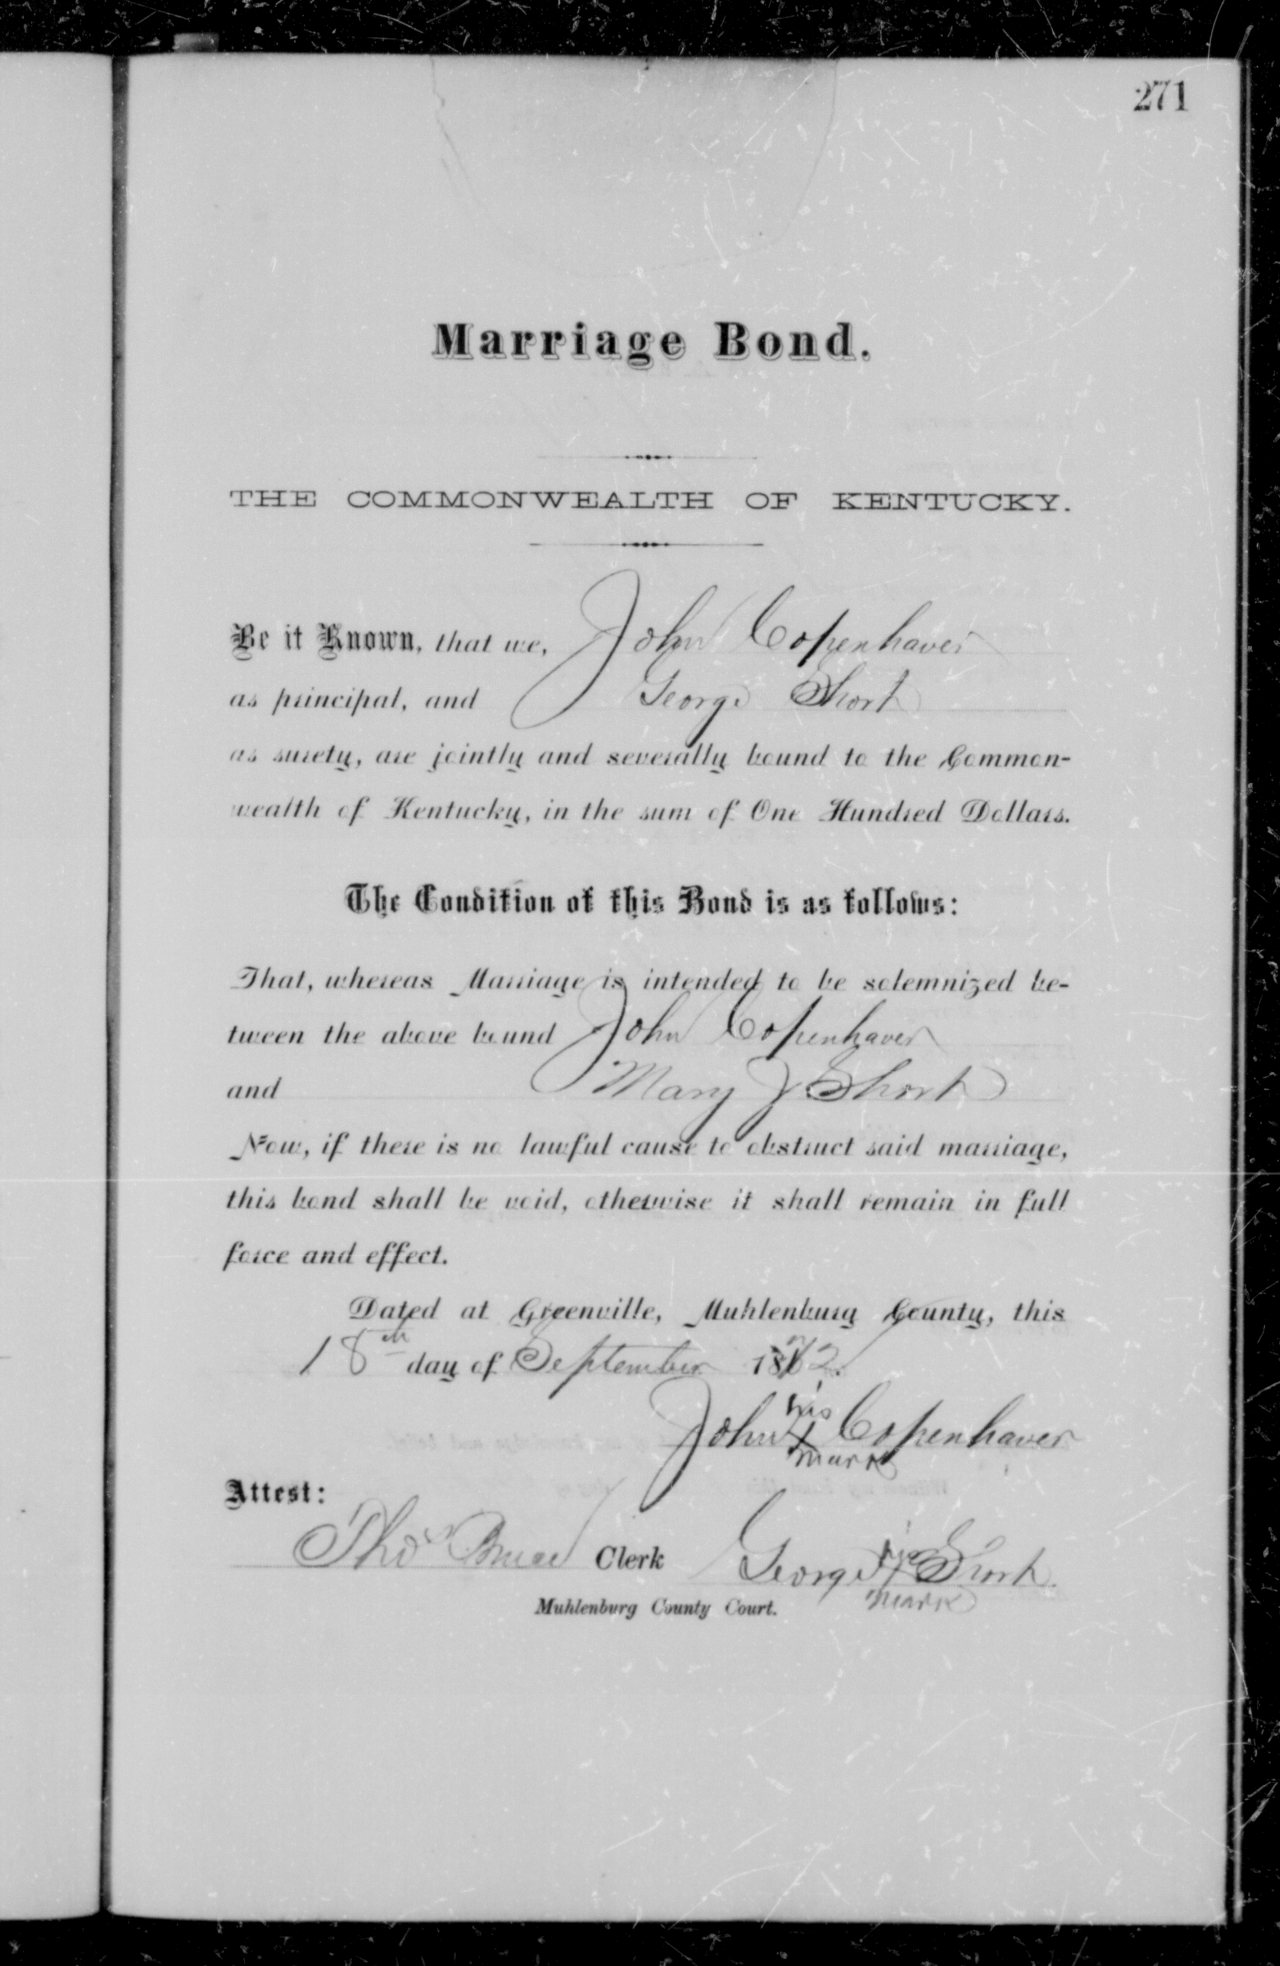 271
Marriage Bond.
THE COMMONWEALTH OF KENTUCKY.
Be it Known, that we, John Copenhaver
as principal, and George Short
as surety, are jointly and severally bound to the Common-
wealth of Kentucky, in the sum of One Hundred Dollars.
The Condition of this Bond is as follows:
That, whereas Marriage is intended to be solemnized be-
tween the above bound John Copenhaver
and Mary J Short
Now, if there is no lawful cause to obstruct said marriage,
this bond shall be void, otherwise it shall remain in full
force and effect.
Dated at Greenville, Muhlenburg County, this
18th day of September 1872.
his
John X Copenhaver
mark
Attest:
Thos Bruce Clerk George X Short
mark
Muhlenburg County Court.